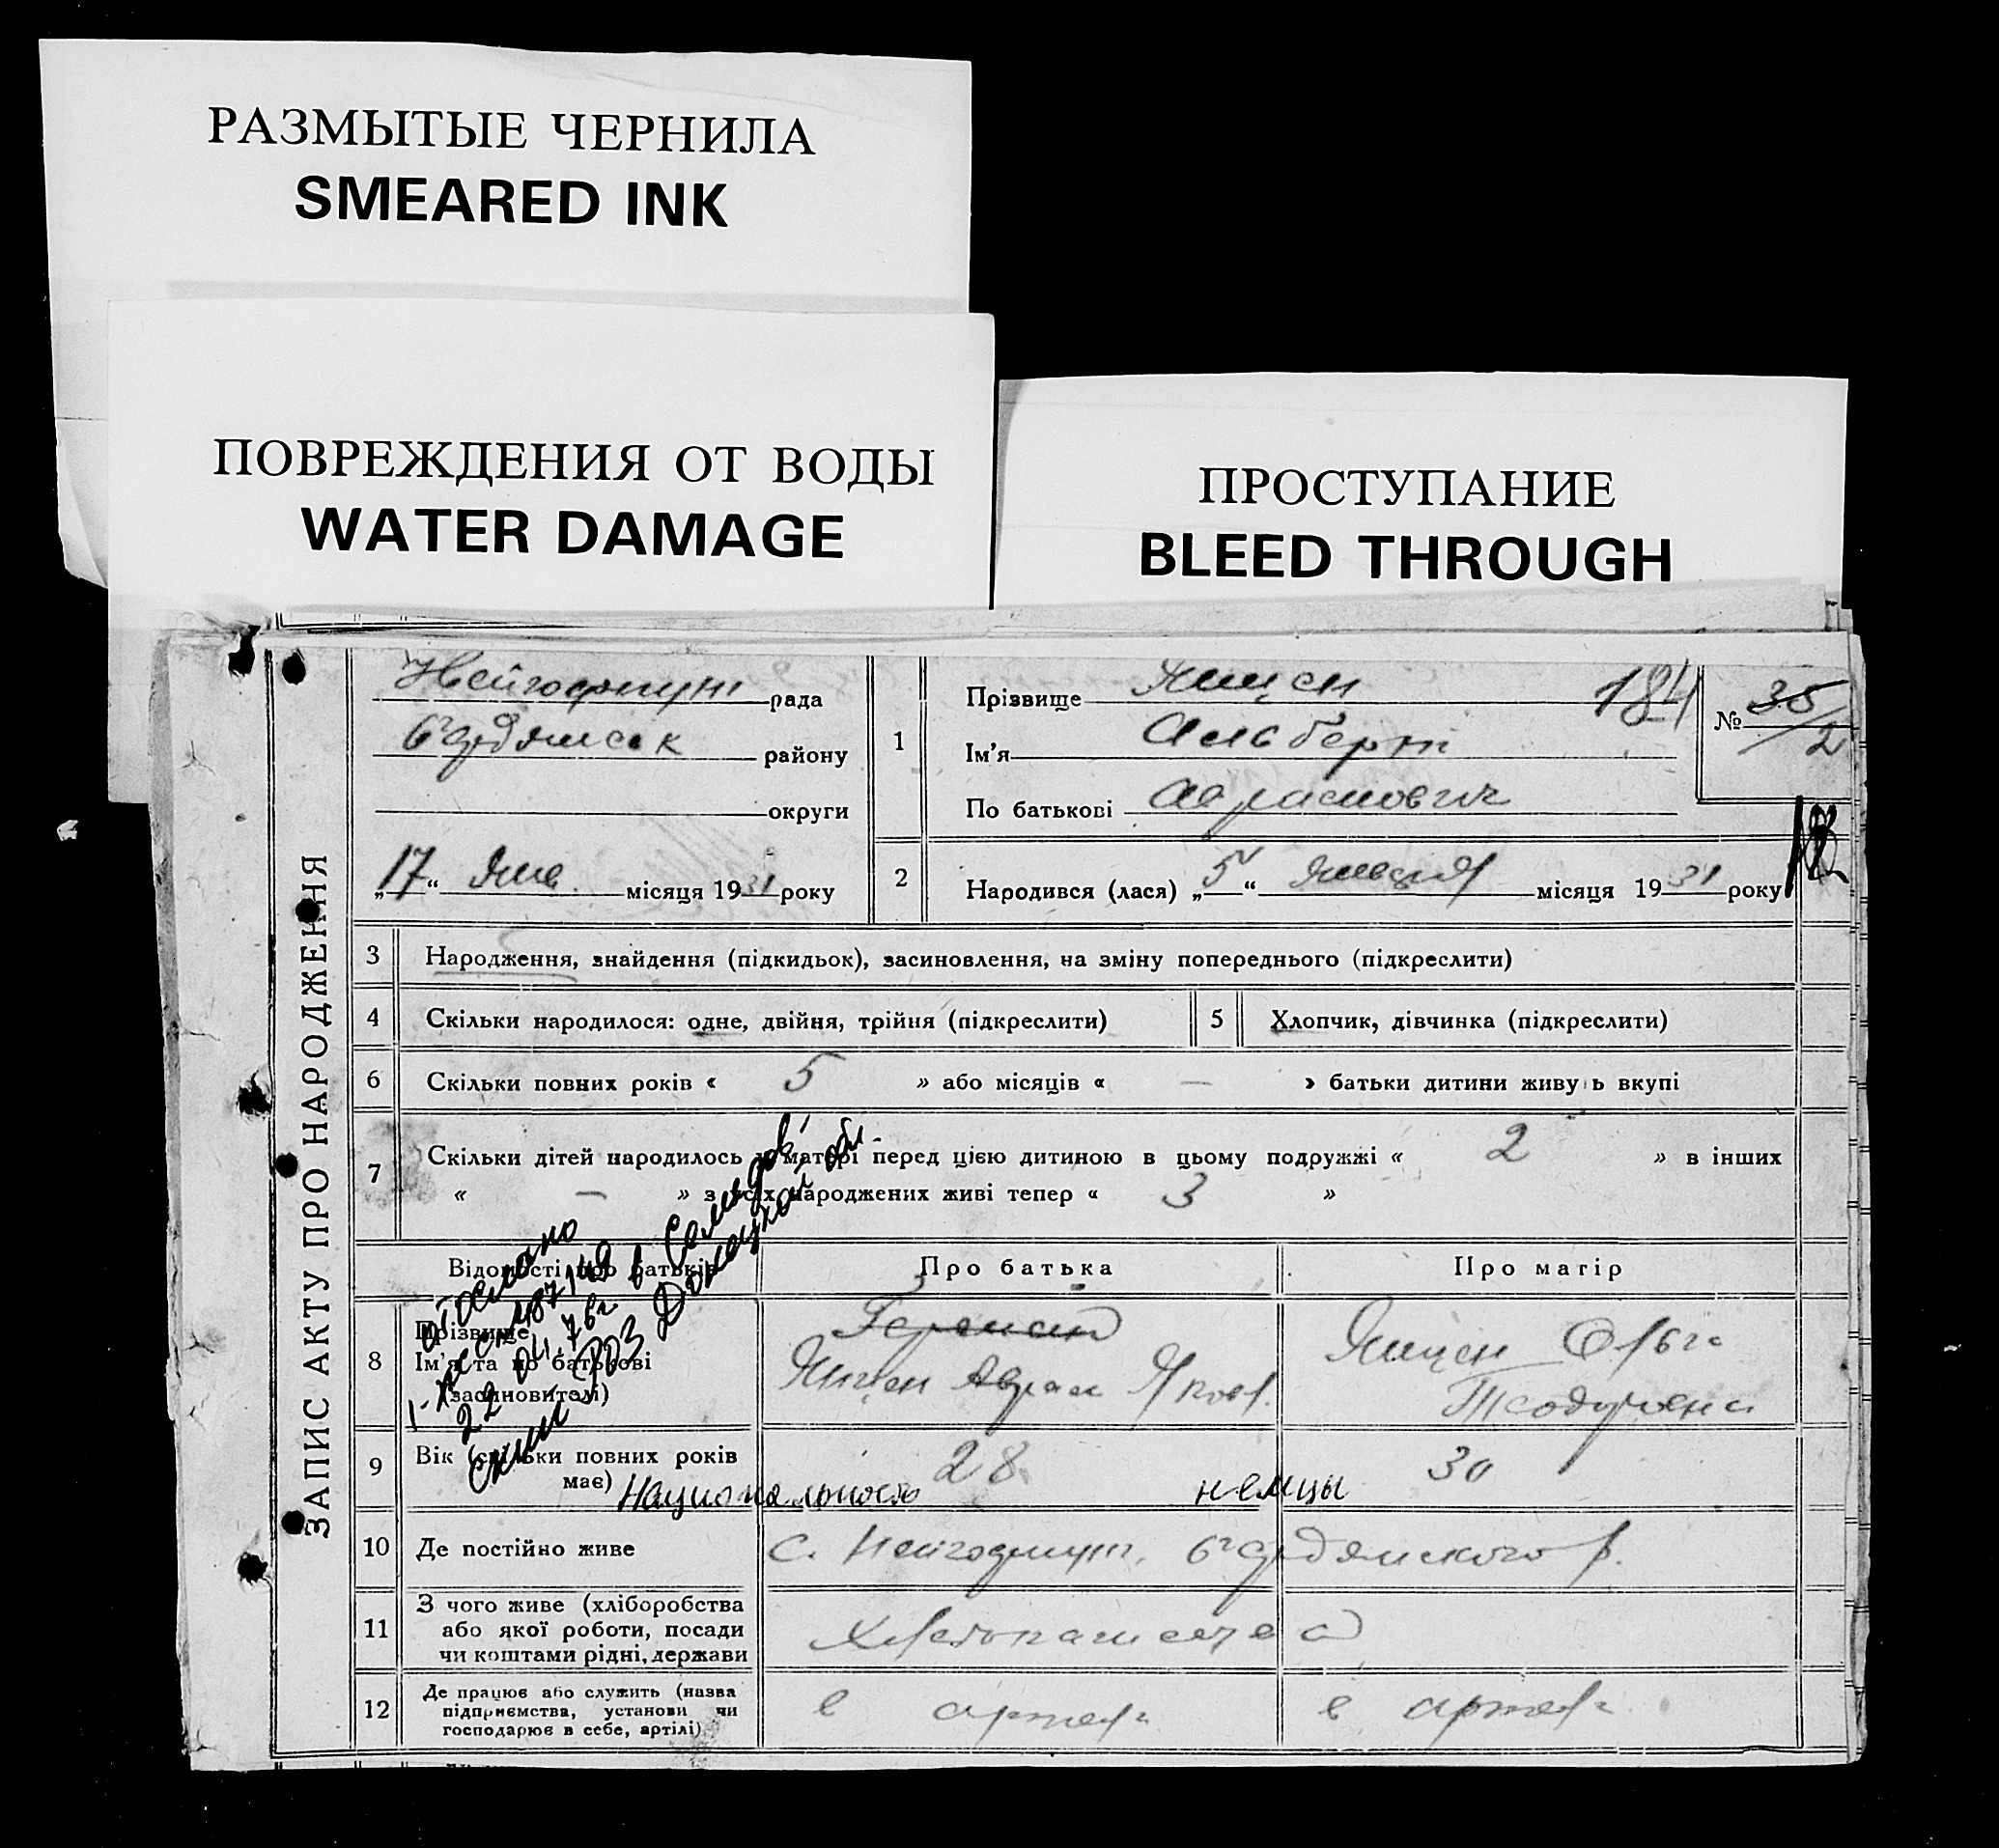 РАЗМЫТЫЕ ЧЕРНИЛА
SMEARED INK
ПОВРЕЖДЕНИЯ ОТ ВОДЫ
WATER DAMAGE
ПРОСТУПАНИЕ
BLEED THROUGH
ЗАПИС АКТУ ПРО НАРОДЖЕННЯ
рада
району
округи
„17“ Янв. місяця 1931 року
1
Прізвище Янцен
184
Ім'я Альберт
По батькові Абрамович
№ 35/2
2
Народився (лася) „5“ Января місяця 1931 року
3 Народження, знайдення (підкидьок), засиновлення, на зміну попереднього (підкреслити)
4 Скільки народилося: одне, двійня, трійня (підкреслити)
5 Хлопчик, дівчинка (підкреслити)
6 Скільки повних років « 5 » або місяців « — » батьки дитини живуть вкупі
7 Скільки дітей народилось у матері перед цією дитиною в цьому подружжі « 2 » в інших
« — » з усіх народжених живі тепер « 3 »
Відомості про батьків
Про батька
Про матір
8 Прізвище
Ім'я та по батькові
(засиновителі)
Янцен Абрам Яковл.
Янцен Ольга
9 Вік (скільки повних років
має)
28
30
Национальность немцы
10 Де постійно живе
с.
11 З чого живе (хліборобства
або якої роботи, посади
чи коштами рідні, держави
Хлебопашества
12 Де працює або служить (назва
підприємства, установи чи
господарює в себе, артілі)
в артели
в артели
отослано
22 04.76г в
Донецкой обл.